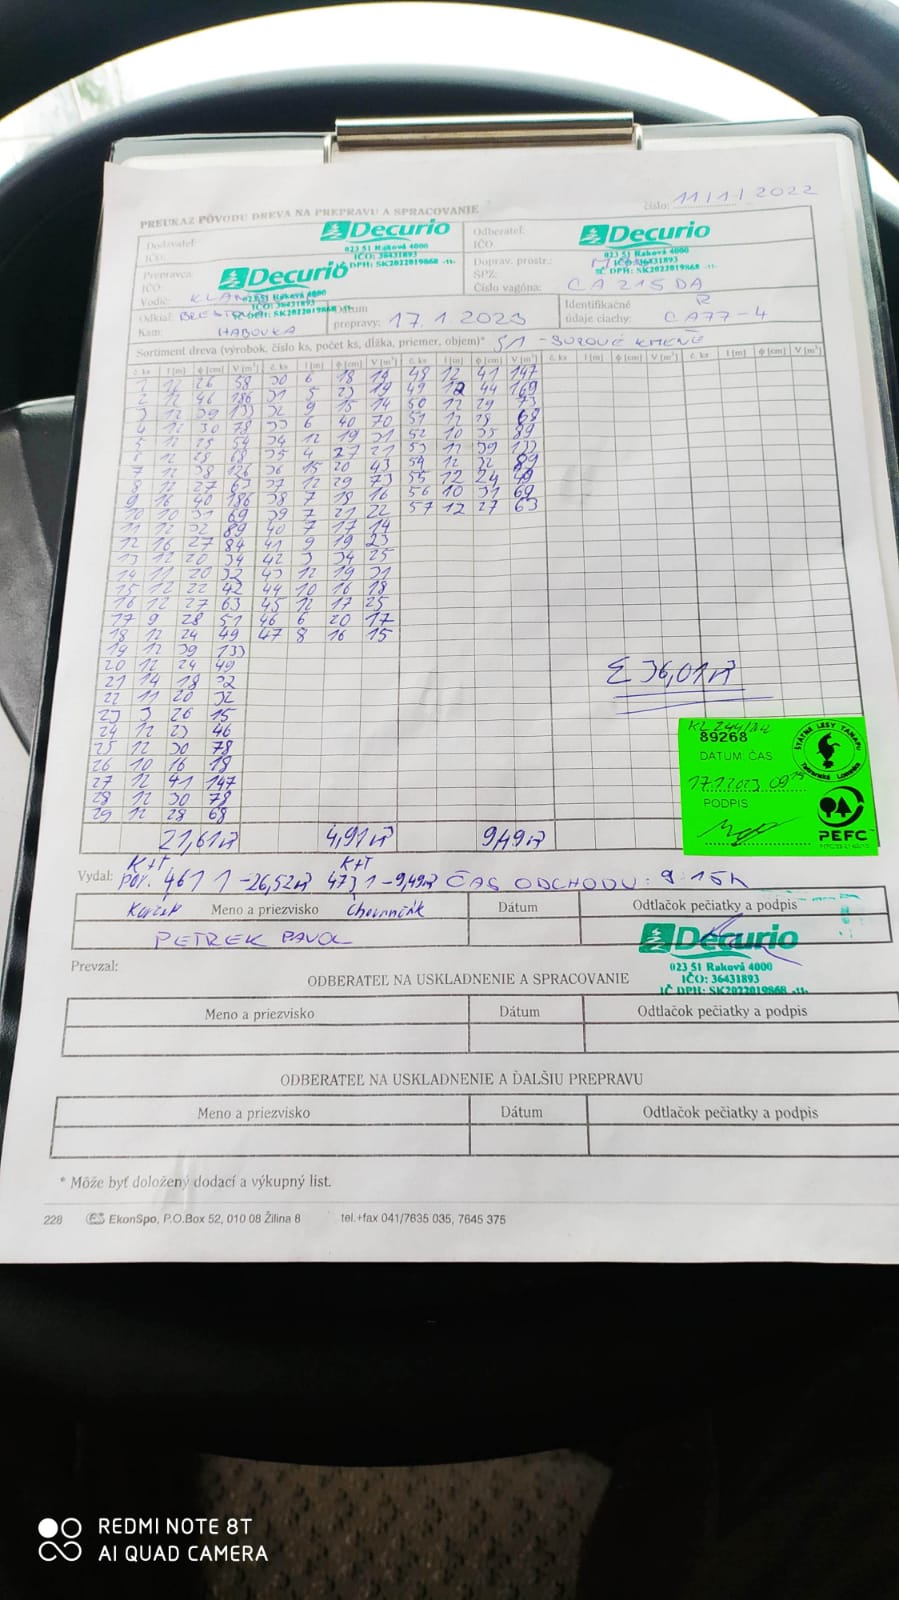 číslo: 11/1-1 2022
PREUKAZ PÔVODU DREVA NA PREPRAVU A SPRACOVANIE
Dodávateľ:
IČO:
Decurio
023 51 Raková 4000
IČO: 36431893
IČ DPH: SK2022019868 -11-
Odberateľ:
IČO:
Decurio
023 51 Raková 4000
IČO: 36431893
IČ DPH: SK2022019868 -11-
Prepravca:
IČO:
Decurio
023 51 Raková 4000
IČO: 36431893
IČ DPH: SK2022019868 -11-
Doprav. prostr.:
ŠPZ:
Číslo vagóna: CA 215 DA
Vodič:
Odkiaľ:
Kam: HABOVKA
Dátum
prepravy: 17.1.2023
Identifikačné R
údaje ciachy: CA77-4
Sortiment dreva (výrobok, číslo ks, počet ks, dĺžka, priemer, objem)* S1 - SUROVÉ KMENE
č. ks l [m] ϕ [cm] V [m³] č. ks l [m] ϕ [cm] V [m³] č. ks l [m] ϕ [cm] V [m³] č. ks l [m] ϕ [cm] V [m³] č. ks l [m] ϕ [cm] V [m³]
1 12 26 58 30 6 18 14 48 12 41 147
2 12 46 186 31 5 23 19 49 12 44 169
3 12 39 133 32 9 15 14 50 12 29 73
4 30 78 33 6 40 70 51 12 28 68
5 12 25 54 34 12 19 31 52 10 35 89
6 12 28 68 35 4 27 21 53 12 39 133
7 12 38 126 36 15 20 43 54 12 32 89
8 12 27 63 37 12 29 73 55 12 24 49
9 16 40 186 38 7 18 16 56 10 31 69
10 10 31 69 39 7 21 22 57 12 27 63
11 12 32 89 40 7 17 14
12 16 27 84 41 9 19 23
13 12 20 34 42 3 34 25
14 11 20 32 43 12 19 31
15 12 22 42 44 10 16 18
16 12 27 63 45 12 17 25
17 9 28 51 46 6 20 17
18 12 24 49 47 8 16 15
19 12 39 133
20 12 24 49
21 14 18 32
22 11 20 32
23 3 26 15
24 12 23 46
25 12 30 78
26 10 16 18
27 12 41 147
28 12 30 78
29 12 28 68
Σ 36,01 m³
89268
DATUM ČAS
17.1.2023 09 15
PODPIS
ŠTÁTNE LESY TANAPU
Tatranská Lomnica
PEFC
21,61 m³ 4,91 m³ 9,49 m³
K+T K+T
Vydal: por. 461 1 - 26,52 m³ 473 1 - 9,49 m³ ČAS ODCHODU: 9:15 h
Meno a priezvisko Dátum Odtlačok pečiatky a podpis
PETREK PAVOL
Decurio
023 51 Raková 4000
IČO: 36431893
IČ DPH: SK2022019868 -11-
Prevzal:
ODBERATEĽ NA USKLADNENIE A SPRACOVANIE
Meno a priezvisko Dátum Odtlačok pečiatky a podpis
ODBERATEĽ NA USKLADNENIE A ĎALŠIU PREPRAVU
Meno a priezvisko Dátum Odtlačok pečiatky a podpis
* Môže byť doložený dodací a výkupný list.
228 EkonSpo, P.O.Box 52, 010 08 Žilina 8 tel.+fax 041/7635 035, 7645 375
REDMI NOTE 8T
AI QUAD CAMERA